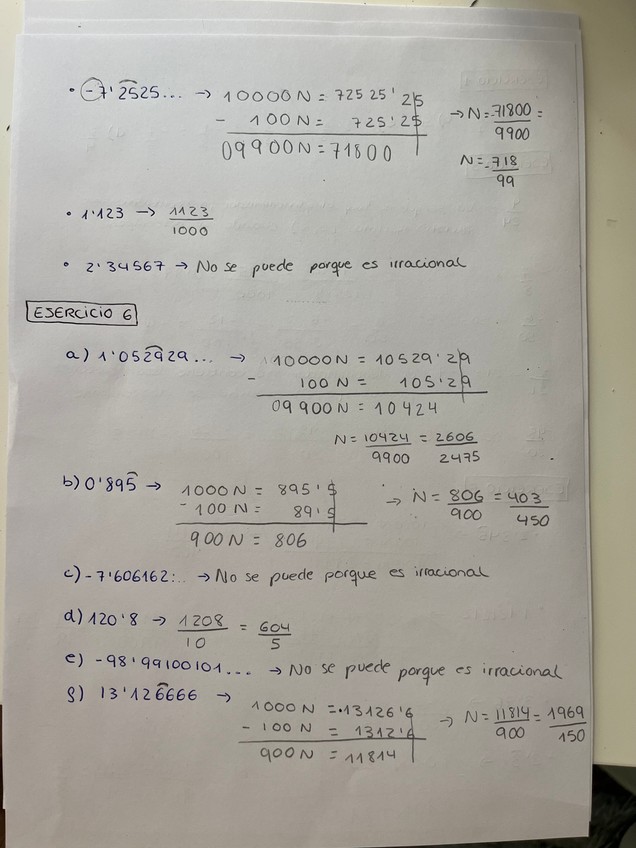 • -7'2525... → 10000N = 72525'25
- 100N = 725'25
09900N = 71800
→ N = -71800 =
9900
N = -718
99
• 1'123 → 1123
1000
• 2'34567 → No se puede porque es irracional
ESERCICIO 6
a) 1'052929... → 10000N = 10529'29
- 100N = 105'29
09900N = 10424
N = 10424 = 2606
9900 2475
b) 0'895 → 1000N = 895'5
- 100N = 89'5
900N = 806
→ N = 806 = 403
900 450
c) -7'606162... → No se puede porque es irracional
d) 120'8 → 1208 = 604
10 5
e) -98'99100101... → No se puede porque es irracional
g) 13'126666 → 1000N = 13126'6
- 100N = 1312'6
900N = 11814
→ N = 11814 = 1969
900 150